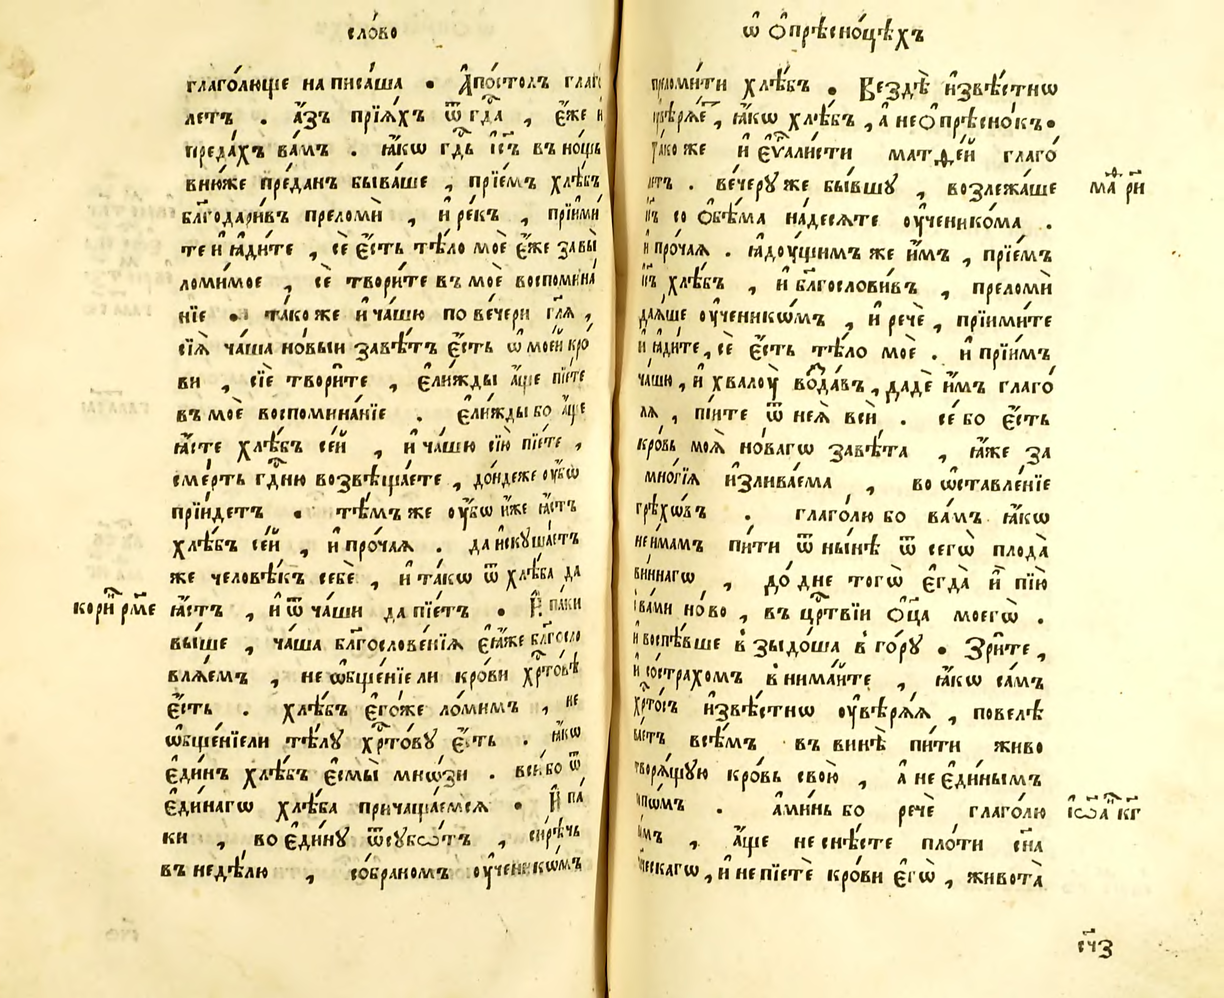 сло́во
глаго́люще на писа́ша . Апо́столъ глаго
летъ . а҆́зъ прїѧ́хъ ѿ гд҇а , є҆́же и
преда́хъ ва́мъ . ꙗ҆́кѡ гд҇ь і҆с҃ъ въ но́щь
в ню́же пре́данъ быва́ше , прїе́мъ хлѣ́бъ
бл҃годари́въ преломѝ , и҆ ре́къ , прїими́
те и҆ ꙗ҆ди́те , сѐ є҆́сть тѣ́ло моѐ є҆́же за вы̀
ломи́мое , сѐ твори́те в моѐ воспомина́
нїе . та́ко же и҆ ча́шю по ве́чери гл҃ѧ ,
сїѧ̀ ча́ша но́выи завѣ́тъ є҆́сть ѡ҆ мое́й кро́
ви , сїѐ твори́те , є҆ли́жды а҆́ще пїе́те
въ моѐ воспомина́нїе . є҆ли́жды бо а҆́ще
ꙗ҆́сте хлѣ́бъ се́й , и҆ ча́шю сїю̀ пїе́те ,
сме́рть гд҇ню возвѣща́ете , до́ндеже ᲂу҆́бѡ
прїи́детъ . тѣ́мъ же ᲂу҆́бѡ и҆́же ꙗ҆́стъ
хлѣ́бъ се́й , и҆ про́чаѧ . да и҆скуша́етъ
же человѣ́къ себѐ , и҆ та́кѡ ѿ хлѣ́ба да
кори҇н рм҃е ꙗ҆́стъ , и҆ ѿ ча́ши да пїе́тъ . И҆ па́ки
вы́ше , ча́ша бл҃гослове́нїѧ є҆ѧ́же бл҃госло
влѧ́емъ , не ѡ҆бще́нїе ли кро́ви хр҇то́вѣ
є҆́сть . хлѣ́бъ є҆го́же ло́мимъ , не
ѡ҆бще́нїели тѣ́лꙋ хр҇то́вꙋ є҆́сть . ꙗ҆́кѡ
є҆ди́нъ хлѣ́бъ є҆смы̀ мно́ѕи . вси́ бо ѿ
є҆ди́нагѡ хлѣ́ба причаща́емсѧ . И҆ па́
ки , во є҆ди́нꙋ ѿ сꙋбѡ́тъ , си́рѣчь
въ недѣ́лю , со́браномъ ᲂу҆ченикѡ́мъ
ѡ҆ ѻ҆прѣсно́цѣхъ
преломи́ти хлѣ́бъ . Вездѣ̀ и҆звѣ́стнѡ
ꙗ҆́кѡ хлѣ́бъ , а҆ не ѻ҆прѣсно́къ .
та́ко же и҆ є҆ѵ҃али́сти матѳе́й глаго́
летъ . ве́черꙋ же бы́вшꙋ , возлежа́ше ма҇ѳ р҃и
со ѻ҆бѣ́ма на́десѧте ᲂу҆ченико́ма .
и҆ про́чаѧ . ꙗ҆дꙋ́щимъ же и҆̀мъ , прїе́мъ
хлѣ́бъ , и҆ бл҃гослови́въ , преломѝ
даѧ́ше ᲂу҆ченикѡ́мъ , и҆ речѐ , прїими́те
и҆ ꙗ҆ди́те , сѐ є҆́сть тѣ́ло моѐ . и҆ прїи́мъ
ча́шю , и҆ хвалоу̀ во́дав , дадѐ и҆̀мъ глаго́
лѧ , пі́ите ѿ неѧ̀ всѝ . се́ бо є҆́сть
кро́вь моѧ̀ но́вагѡ завѣ́та , ꙗ҆́же за
мно́гїѧ и҆злива́ема , во ѡ҆ставле́нїе
грѣхѡ́въ . глаго́лю бо ва́мъ ꙗ҆́кѡ
не и҆́мамъ пи́ти ѿ ны́нѣ ѿ сегѡ̀ плода̀
ви́ннагѡ , до́ дне тогѡ̀ є҆гда̀ и҆̀ пїю̀
ва́ми но́во , въ цр҇твїи ѻ҆ц҃а моегѡ̀ .
и҆ воспѣ́вше в̾зыдо́ша в̾ го́рꙋ . Зри́те ,
и҆ со́ страхомъ в̾нима́йте , ꙗ҆́кѡ са́мъ
хр҇то́съ и҆звѣ́стнѡ ᲂу҆вѣрѧ́ѧ , повелѣ
ва́етъ всѣ́мъ въ винѣ̀ пи́ти живо
творѧ́щꙋю кро́вь свою̀ , а҆ не є҆ди́нымъ
а҆ми́нь бо речѐ глаго́лю і҆ѡ҇а к҃г
а҆́ще не снѣ́сте пло́ти сн҃а
ческагѡ , и҆ не пїетѐ кро́ви є҆гѡ̀ , живота̀
сч҃з